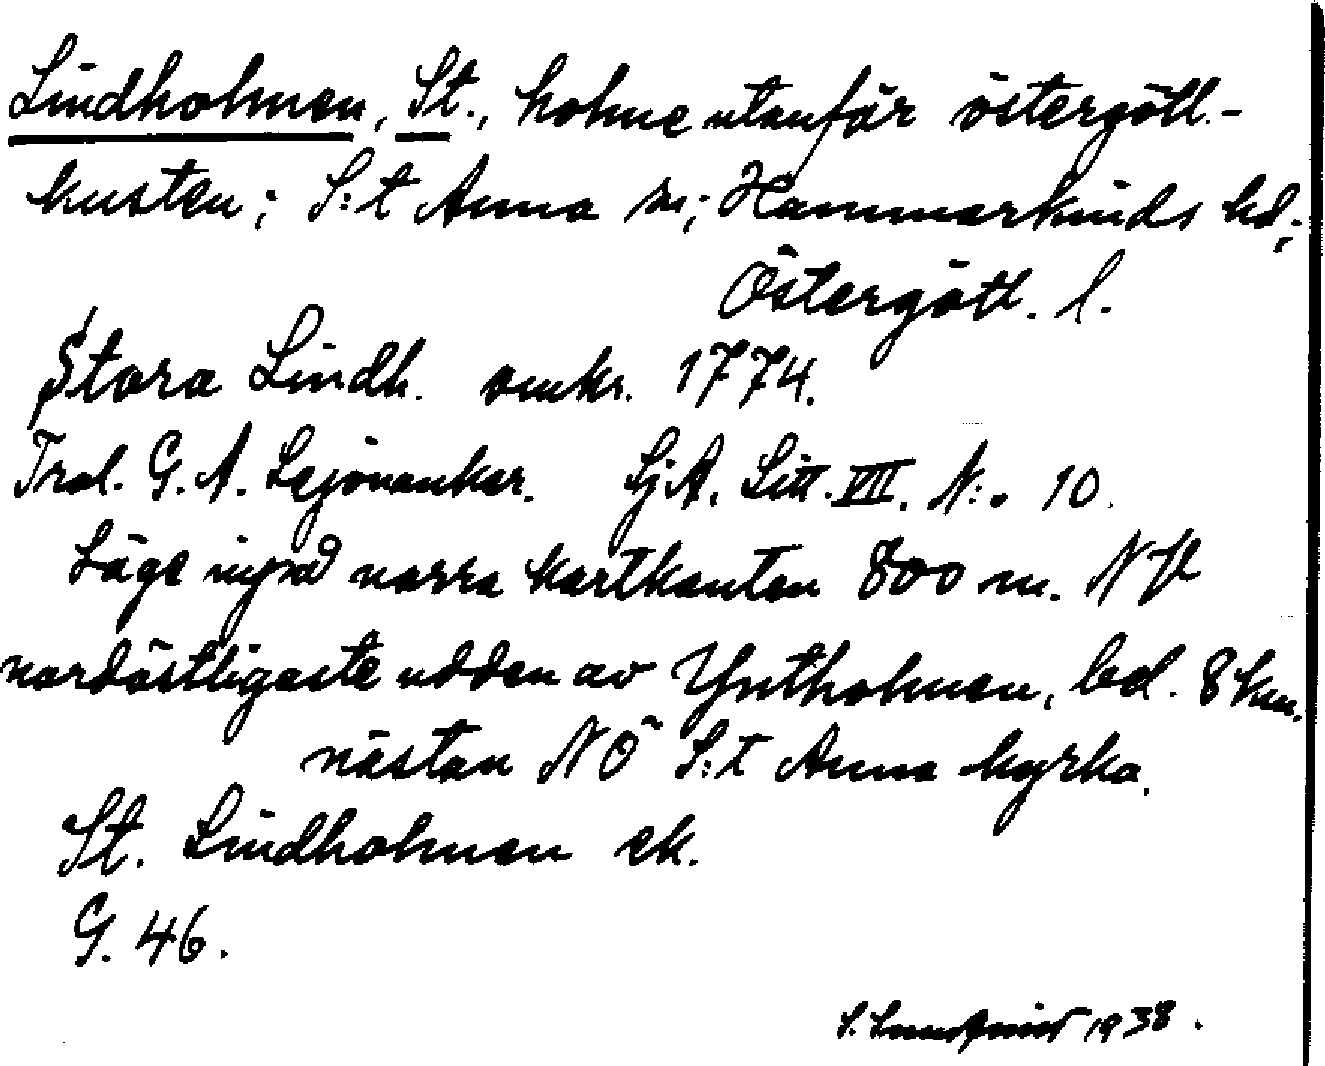 Lindholmen, St., holme utanför östergötl.-
kusten; S:t Anna sn; Hammarkinds hd;
Östergötl. l.
Stora Lindh. omkr. 1774.
Trol. G. A. Lejonankar. SjA. Litt. VIII. N:o 10.
Läge invid norra kartkanten 800 m. NV
nordöstligaste udden av Ytterholmen, bel. 8 km.
nästan NÖ S:t Anna kyrka.
St. Lindholmen ek.
G. 46.
S. 1938.